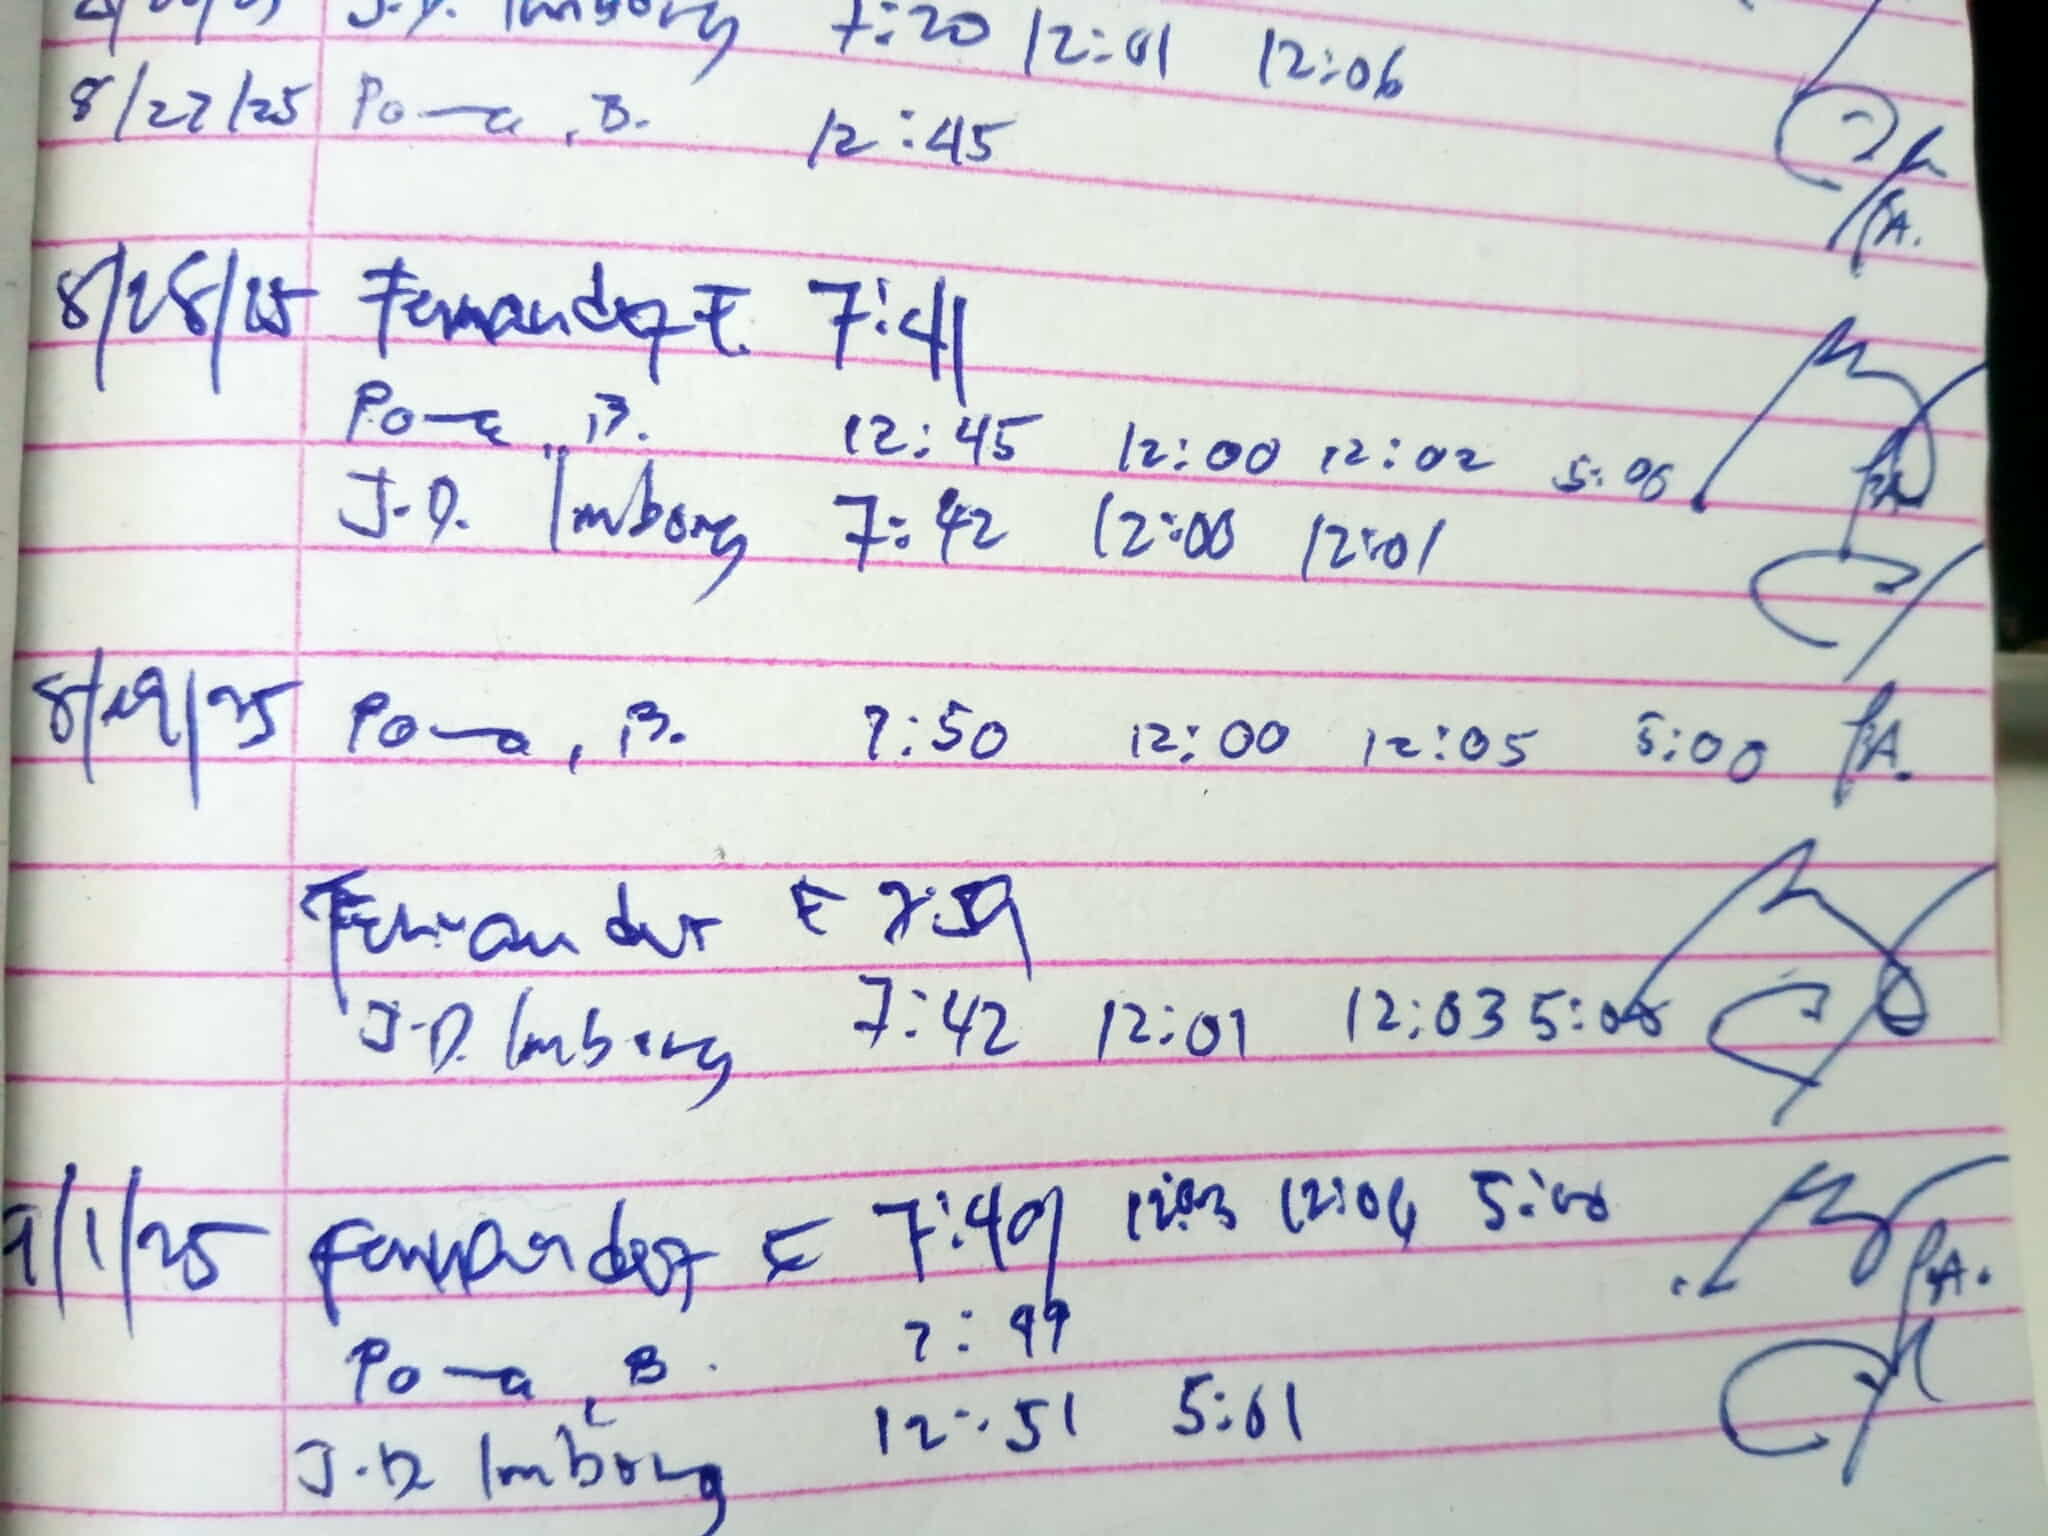 J.D. Imborg 7:20 12:01 12:06
8/27/25 Po a, B. 12:45
8/28/25 Fernandez E. 7:41
Po a, B. 12:45 12:00 12:02 5:06
J.D. Imborg 7:42 12:00 12:01
8/29/25 Po a, B. 7:50 12:00 12:05 5:00 A.
Fernandez E 7:59
J.D. Imborg 7:42 12:01 12:03 5:00
9/1/25 Fernandez E 7:49 12:03 12:04 5:00
Po a, B. 7:49
J.D Imborg 12:51 5:01